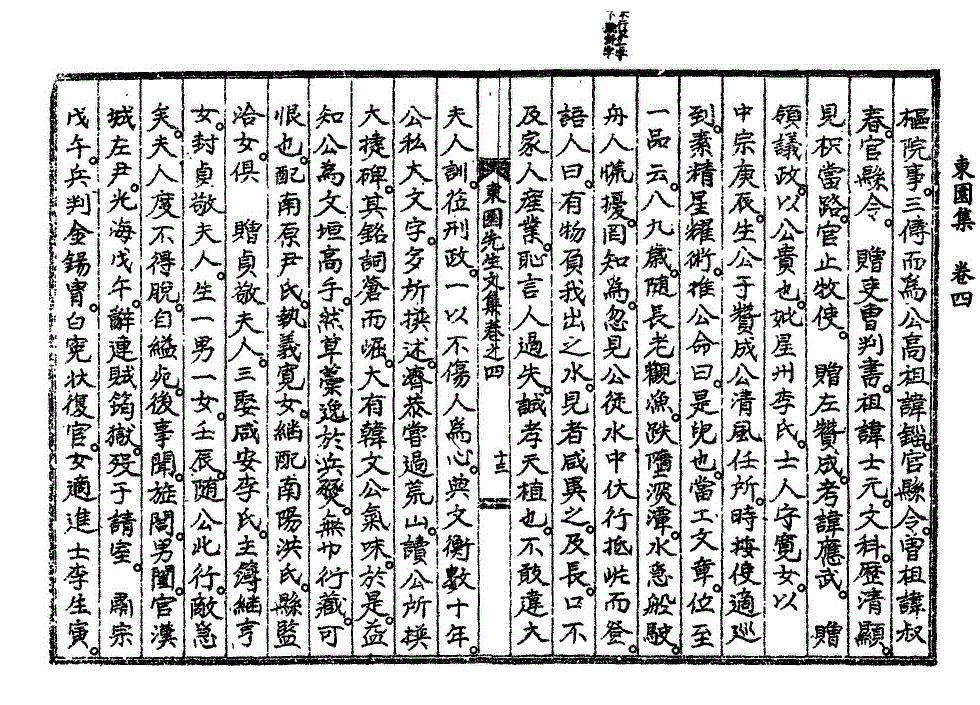 東園集　卷四
樞院事。三傳而爲公高祖諱錙。官縣令。曾祖諱叔
春。官縣令。　贈吏曹判書。祖諱士元。文科。歷清顯。
見枳當路。官止牧使。　贈左贊成。考諱應武。　贈
領議政。以公貴也。妣星州李氏。士人守寬女。以
中宗庚辰。生公于贊成公清風任所。時按使適巡
到。素精星耀術。推公命曰。是兒也。當工文章。位至
一品云。八九歲。隨長老觀漁。跌墮深潭。水急般駛。
舟人慌擾。罔知爲。忽見公從水中伏行抵岸而登。
語人曰。有物負我出之水。見者咸異之。及長。口不
及家人產業。恥言人過失。誠孝天植也。不敢違大
東園先生文集卷之四　十三
夫人訓。莅刑政。一以不傷人爲心。典文衡數十年。
公私大文字。多所撰述。濟恭嘗過荒山。讀公所撰
大捷碑。其銘詞蒼而崛。大有韓文公氣味。於是。益
知公爲文垣高手。然草藁逸於兵燹。無巾行藏。可
恨也。配南原尹氏。執義寬女。繼配南陽洪氏。縣監
洽女。俱　贈貞敬夫人。三娶咸安李氏。主簿繼亨
女。封貞敬夫人。生一男一女。壬辰。隨公北行。敵急
矣。夫人度不得脫。自縊死。後事聞。旌閭。男闉。官漢
城左尹。光海戊午。辭連賊筠獄。歿于請室。　肅宗
戊午。兵判金錫冑。白寃狀復官。女適進士李生寅。